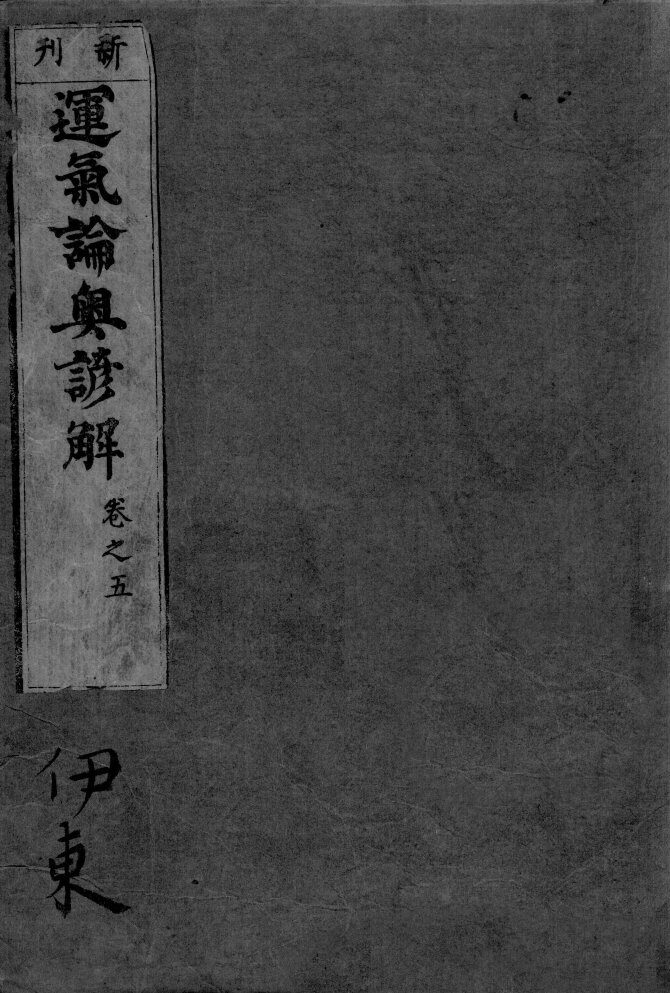 新刊
運氣論奥諺解
卷之五
伊東